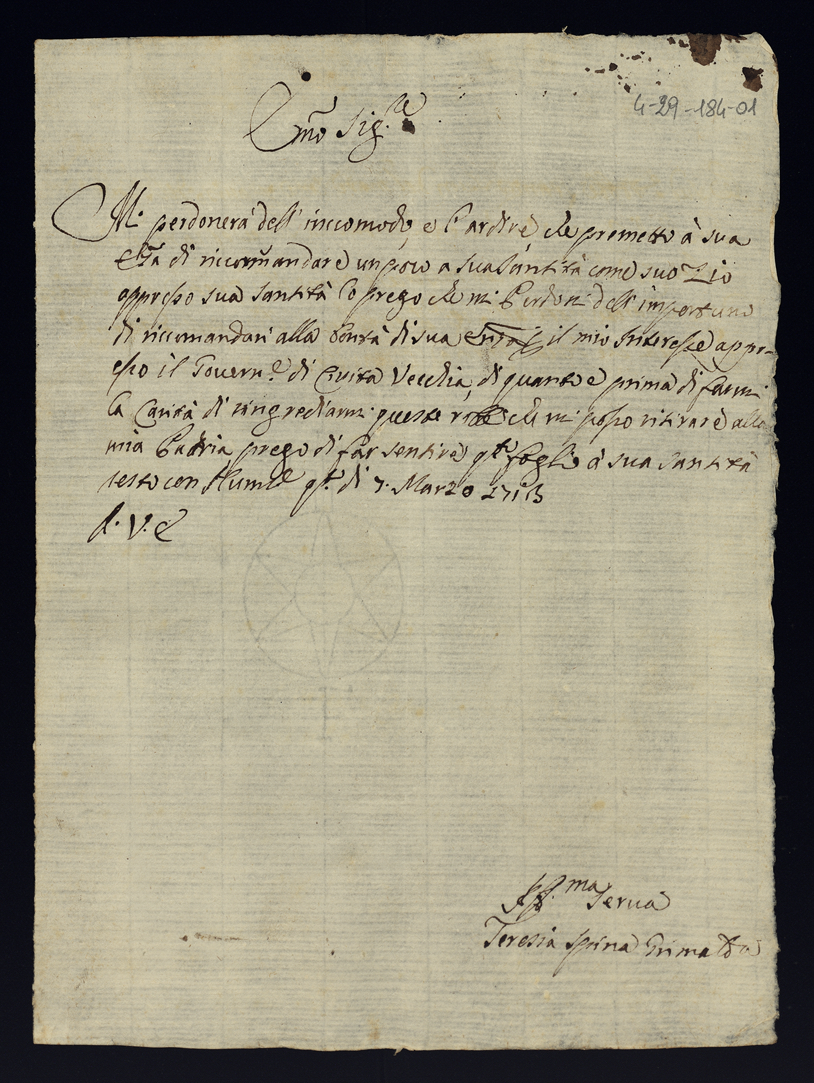 4-29-184-01
Emo Sig.re
Mi perdonerà dell' inccomodo, e l'ardire che premetto à sua
Emza di riccommandare un poco a sua Santità come suo Zio
appresso sua santità lo prego che mi Perdoni dell' importuna
di riccomandari alla bontà di sua il mio Interesse appr-
esso il Govern.e di Civita Vecchia, di quanto è prima di farmi
la Carità di che mi posso ritirare alla
mia Padria prego di far sentire qto foglio à sua Santità
resto con qto di 7. Marzo 1713
D. V. E
ma Serua
Teresia Spina Grimalda